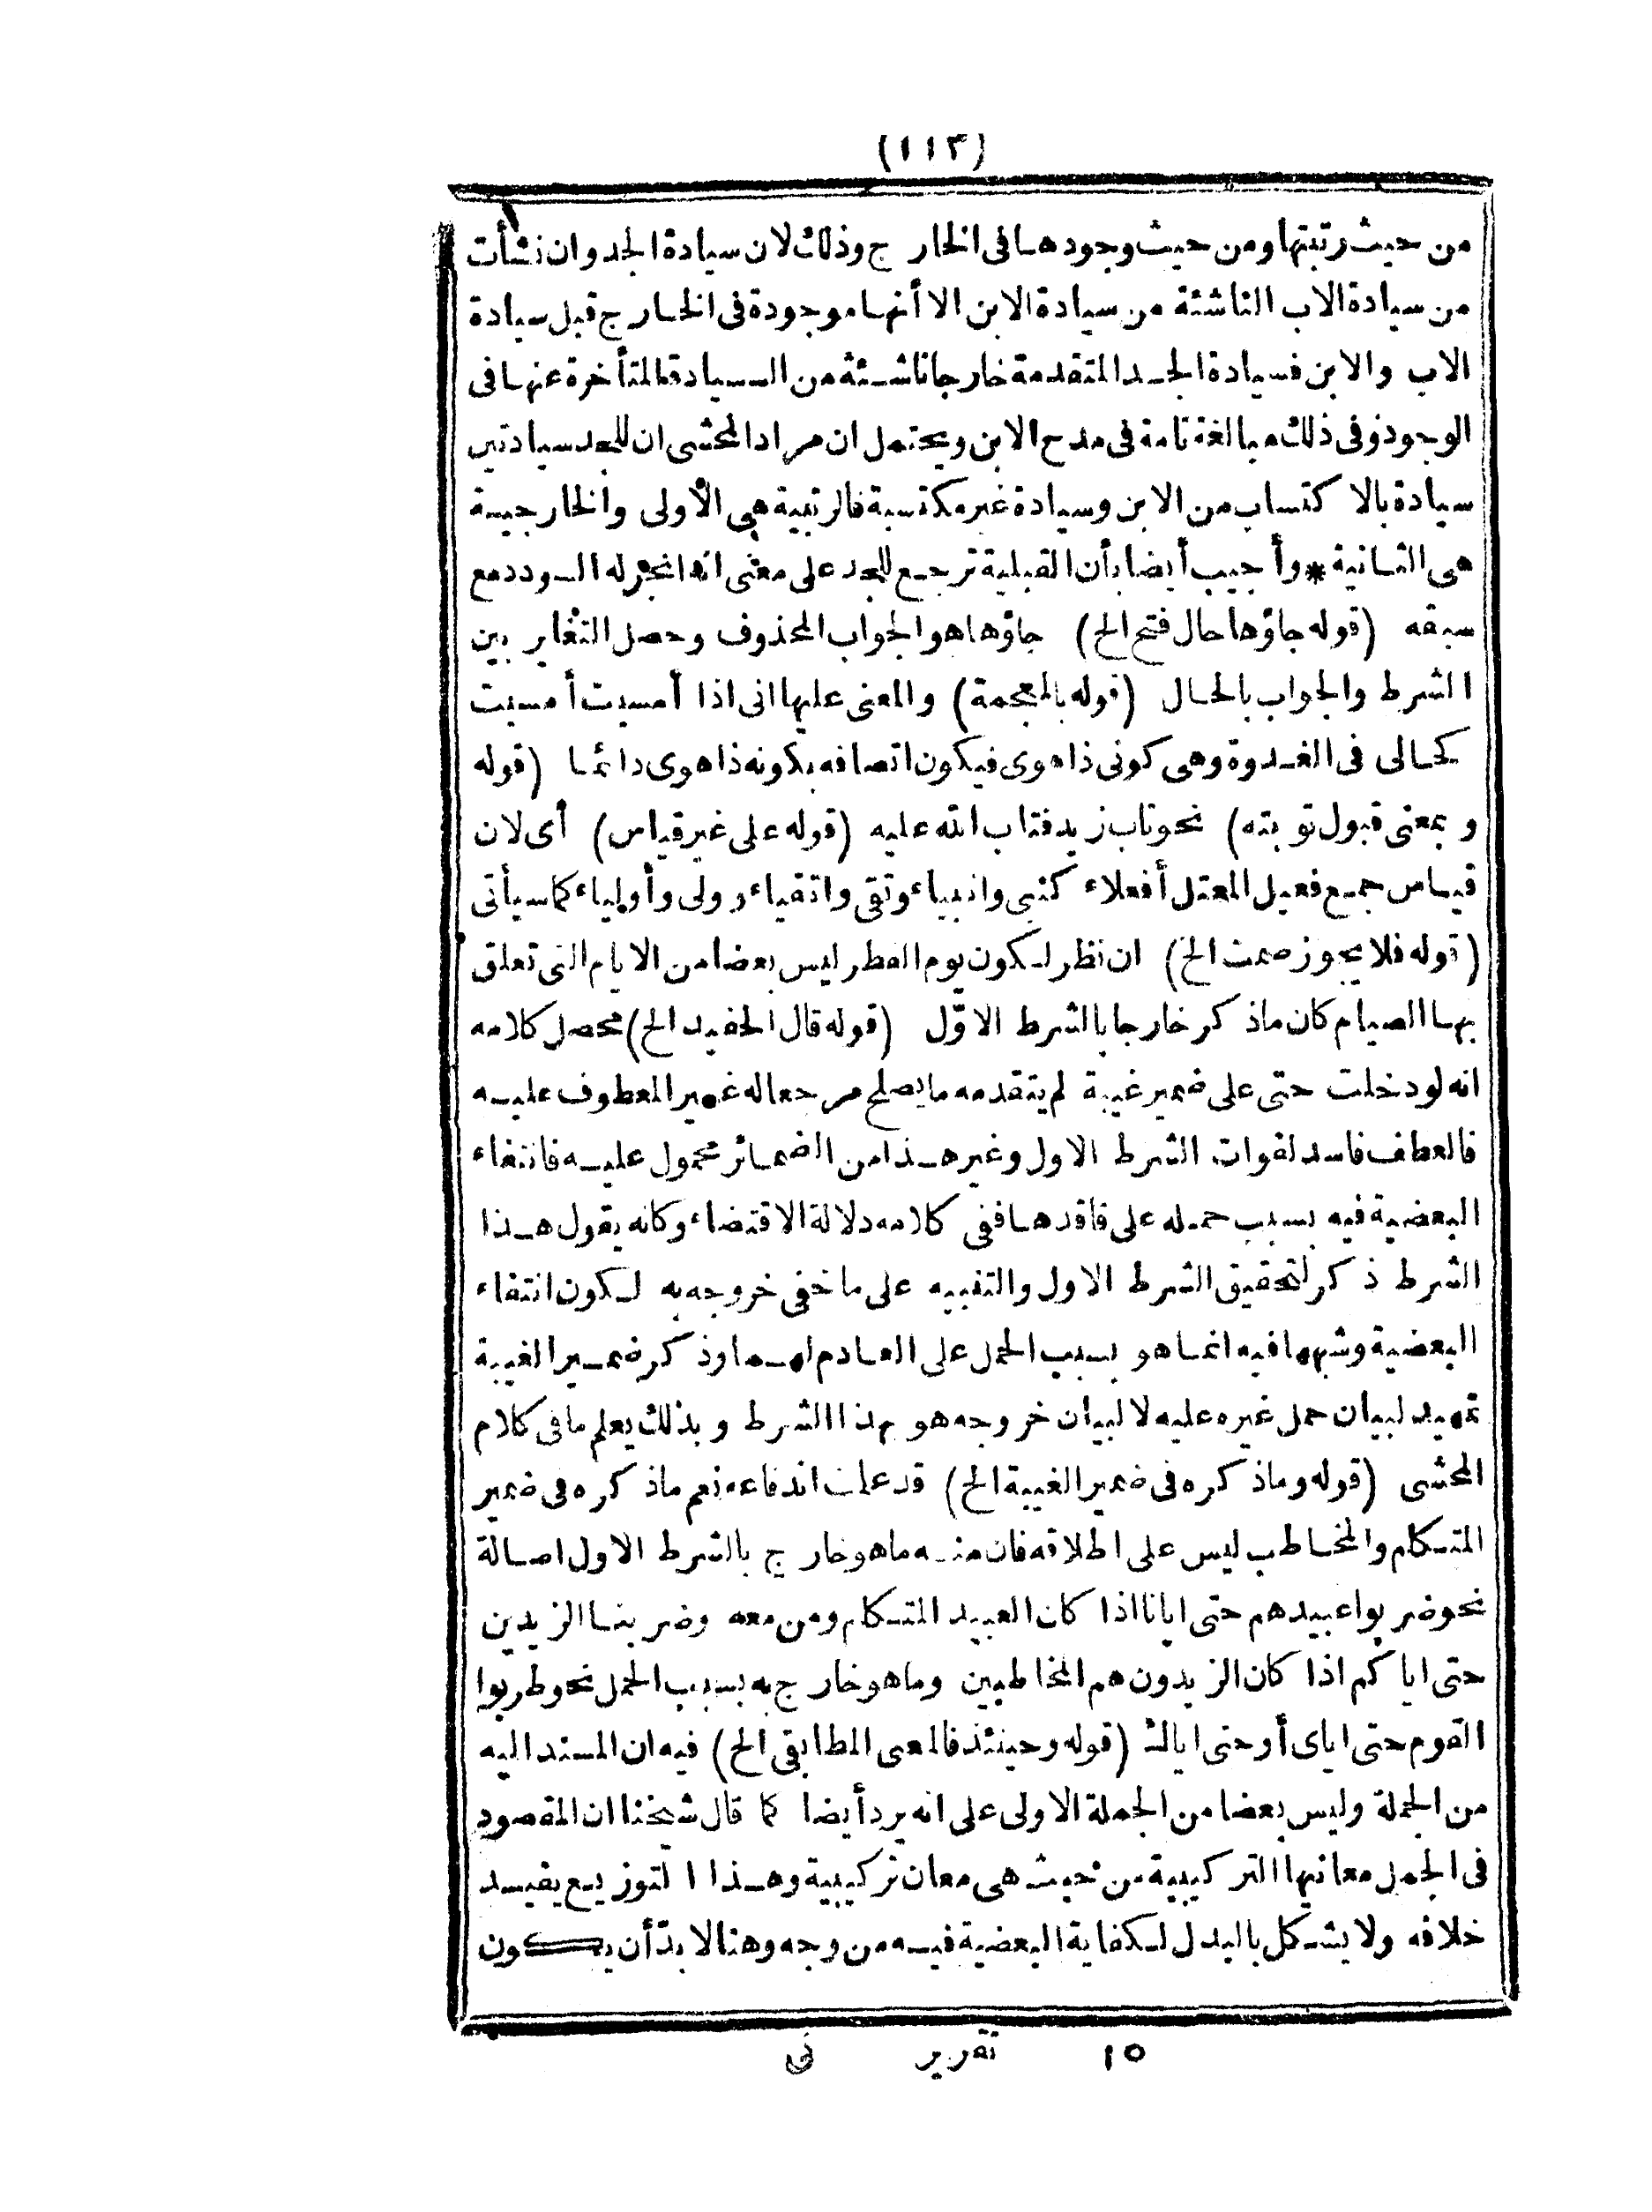 (١١٣)
من حيث رتبتها ومن حيث وجودها فى الخارج وذلك لان سيادة الجد وان نشأت
من سيادة الاب الناشئة من سيادة الابن الا أنها موجودة فى الخارج قبل سيادة
الاب والابن فسيادة الجد المتقدمة خارجا ناشئة من السيادة المتأخرة عنها فى
الوجود وفى ذلك مبالغة تامة فى مدح الابن ويحتمل ان مراد المحشى ان للجد سيادتين
سيادة بالاكتساب من الابن وسيادة غير مكتسبة فالرتبية هى الأولى والخارجية
هى الثانية * وأجيب أيضا بأن القبلية ترجع للجد على معنى انه انجر له السودد مع
سبقه (قوله جاؤها حال فتح الخ) جاؤها هو الجواب المحذوف وحصل التغاير بين
الشرط والجواب بالحال (قوله بالمعجمة) والمعنى عليها انى اذا أمسيت أمسيت
كحالى فى الغدوة وهى كونى ذا هوى فيكون اتصافه بكونه ذا هوى دائما (قوله
وبمعنى قبول توبته) نحو تاب زيد فتاب الله عليه (قوله على غير قياس) أى لان
قياس جمع فعيل المعتل أفعلاء كنبى وانبياء وتقى واتقياء وولى وأولياء كما سيأتى
(قوله فلا يجوز صمت الخ) ان نظر لكون يوم الفطر ليس بعضا من الايام التى تعلق
بها الصيام كان ماذكر خارجا بالشرط الاوّل (قوله قال الحفيد الخ) محصل كلامه
انه لو دخلت حتى على ضمير غيبة لم يتقدمه ما يصلح مرجعا له غير المعطوف عليه
فالعطف فاسد لفوات الشرط الاول وغير هذا من الضمائر محمول عليه فانتفاء
البعضية فيه بسبب حمله على فاقدها ففى كلامه دلالة الاقتضاء وكانه يقول هذا
الشرط ذكر لتحقيق الشرط الاول والتنبيه على ما خفى خروجه به لكون انتفاء
البعضية وشبهها فيه انما هو بسبب الحمل على العادم لهما وذكر ضمير الغيبة
تمهيد لبيان حمل غيره عليه لا لبيان خروجه هو بهذا الشرط وبذلك يعلم ما فى كلام
المحشى (قوله وماذكره فى ضمير الغيبة الخ) قد علمت اندفاعه نعم ماذكره فى ضمير
المتكلم والمخاطب ليس على اطلاقه فان منه ما هو خارج بالشرط الاول اصالة
نحو ضربوا عبيدهم حتى ايانا اذا كان العبيد المتكلم ومن معه وضربنا الزيدين
حتى اياكم اذا كان الزيدون هم المخاطبين وما هو خارج به بسبب الحمل نحو ضربوا
القوم حتى اياى أو حتى اياك (قوله وحينئذ فالمعى المطابقى الخ) فيه ان المسند اليه
من الجملة وليس بعضا من الجملة الاولى على انه يرد أيضا كما قال شيخنا ان المقصود
فى الجمل معانيها التركيبية من حيث هى معان تركيبية وهذا التوزيع يفيد
خلافه ولا يشكل بالبدل لكفاية البعضية فيه من وجه وهنا لا بدّ أن يكون
١٥ تقرير نى